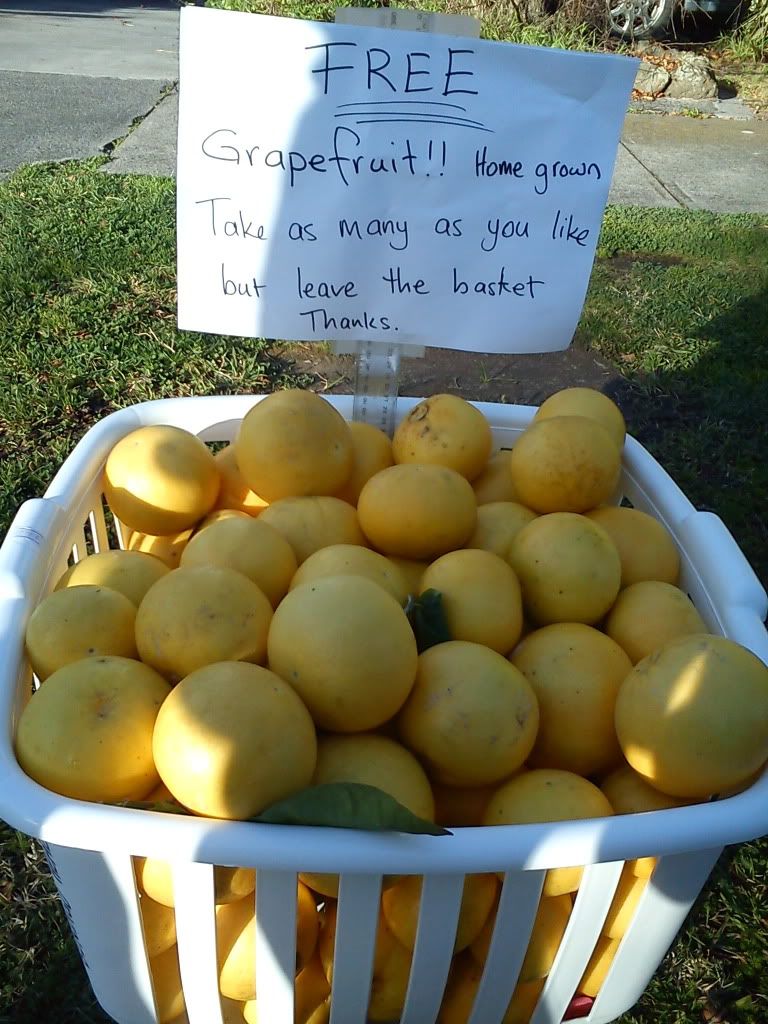 FREE
Grapefruit!! Home grown
Take as many as you like
but leave the basket
Thanks.